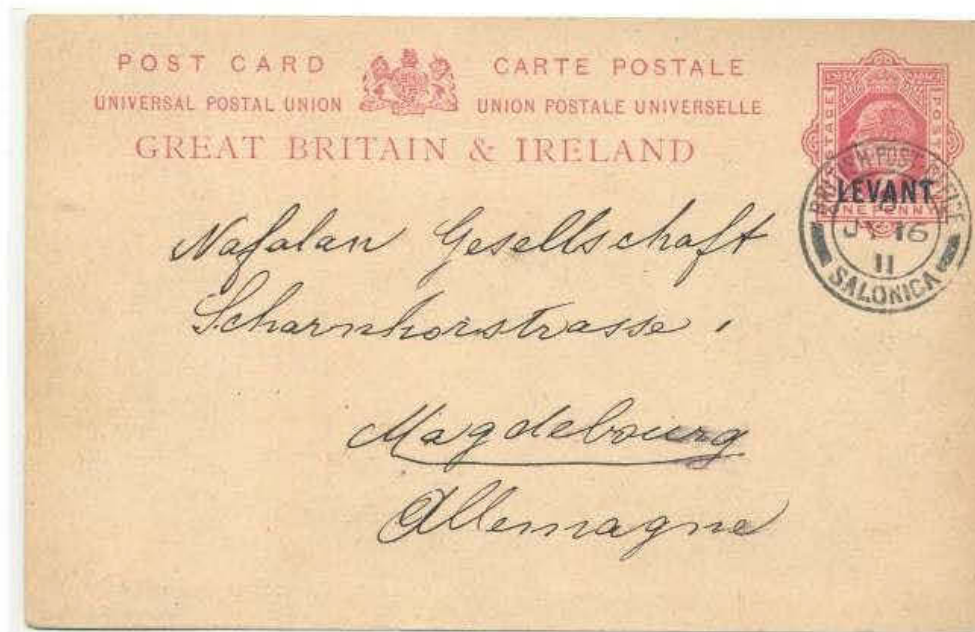 POST CARD CARTE POSTALE
UNIVERSAL POSTAL UNION UNION POSTALE UNIVERSELLE
GREAT BRITAIN & IRELAND
POSTAGE POSTAGE
LEVANT
ONE PENNY
BRITISH POST OFFICE
JY 16
11
SALONICA
Nafalan Gesellschaft
Scharnhorstrasse 1
Magdebourg
Allemagne